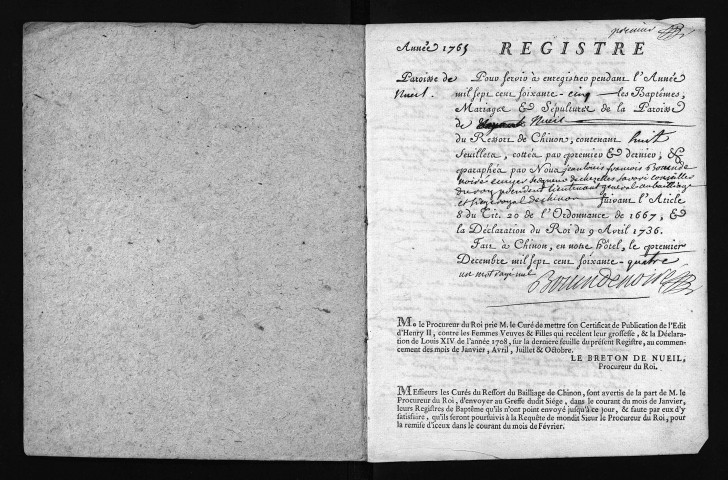 premier
Année 1765 REGISTRE
Paroisse de Nueil.
Pour servir à enregistrer pendant l'Année
mil sept cent soixante-cinq les Baptêmes,
Mariages & Sépultures de la Paroisse
de Nueil
du Ressort de Chinon, contenant huit
feuillets, cottés par premier & dernier, &
paraphés par Nous jean louis françois Bourde
noise ecuyer seigneur de chezelles savari conseiller
du roy president lieutenant general au bailliage
et siege royal de chinon suivant l'Article
8 du Tit. 20 de l'Ordonnance de 1667, &
la Déclaration du Roi du 9 Avril 1736.
Fait à Chinon, en notre hôtel, le premier
Decembre mil sept cent soixante-quatre
un mot rayé nul
Mr le Procureur du Roi prie M. le Curé de mettre son Certificat de Publication de l'Edit
d'Henry II, contre les Femmes Veuves & Filles qui recèlent leur grossesse, & la Déclara-
tion de Louis XIV de l'année 1708, sur la derniere feuille du présent Registre, au commen-
cement des mois de Janvier, Avril, Juillet & Octobre.
LE BRETON DE NUEIL,
Procureur du Roi.
MEssieurs les Curés du Ressort du Bailliage de Chinon, sont avertis de la part de M. le
Procureur du Roi, d'envoyer au Greffe dudit Siége, dans le courant du mois de Janvier,
leurs Registres de Baptême qu'ils n'ont point envoyé jusqu'à ce jour, & faute par eux d'y
satisfaire, qu'ils seront poursuivis à la Requête de mondit Sieur le Procureur du Roi, pour
la remise d'iceux dans le courant du mois de Février.